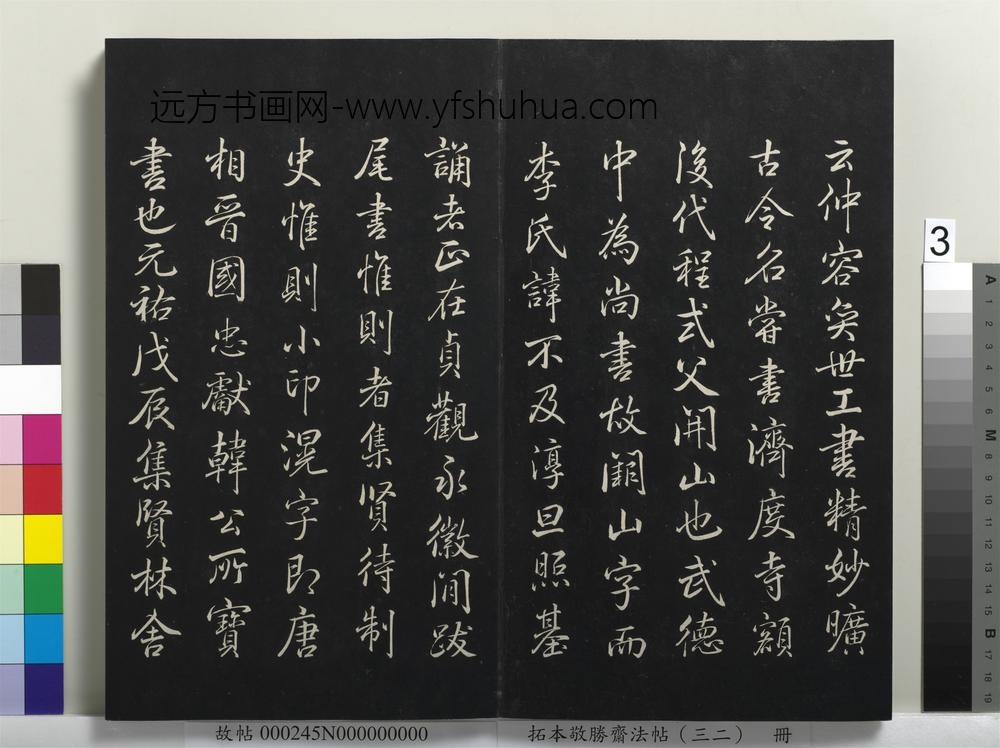 远方书画网-www.yfshuhua.com
云仲容奕世工書精妙曠
古今名嘗書濟度寺額
後代程式父開山也武德
中為尚書故闕山字而
李氏諱不及淳旦照基
誦者正在貞觀永徽間跋
尾書惟則者集贤待制
史惟則小印滉字即唐
相晉國忠獻韓公所寶
書也元祐戊辰集賢林舍
3
A 1 2 3 4 5 M 8 9 10 11 12 13 14 15 B 17 18 19
故帖 000245N000000000
拓本敬勝齋法帖（三二） 冊